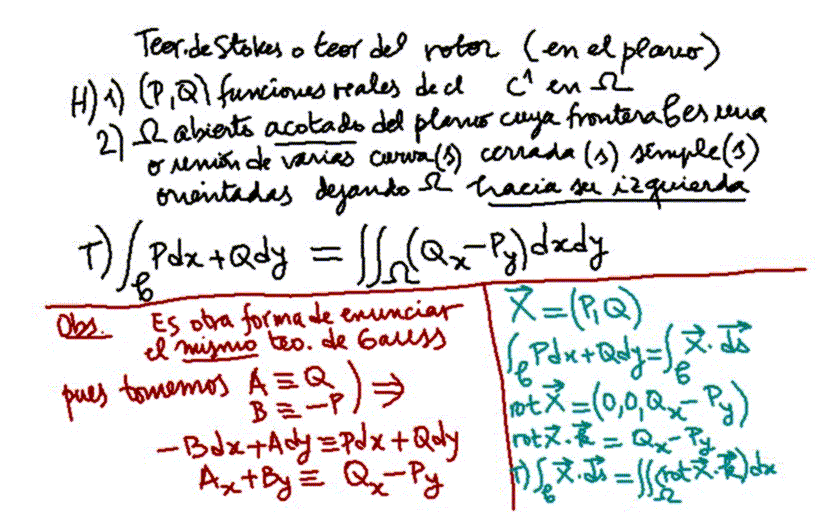 Teor. de Stokes o teor del rotor (en el plano)
H) 1) (P,Q) funciones reales de cl C¹ en Ω
2) Ω abierto acotado del plano cuya frontera ℒ es una
o unión de varias curva(s) cerrada(s) simple(s)
orientadas dejando Ω hacia su izquierda
T) ∫_ℒ Pdx + Qdy = ∬_Ω (Qx - Py) dxdy
Obs. Es otra forma de enunciar
el mismo teo. de Gauss
pues tomemos A ≡ Q
B ≡ -P ) ⇒
-Bdx + Ady ≡ Pdx + Qdy
Ax + By ≡ Qx - Py
X⃗ = (P,Q)
∫_ℒ Pdx + Qdy = ∫_ℒ X⃗ · ds⃗
rot X⃗ = (0,0,Qx - Py)
rot X⃗ · k⃗ = Qx - Py
T) ∫_ℒ X⃗ · ds⃗ = ∬_Ω (rot X⃗ · k⃗) dx